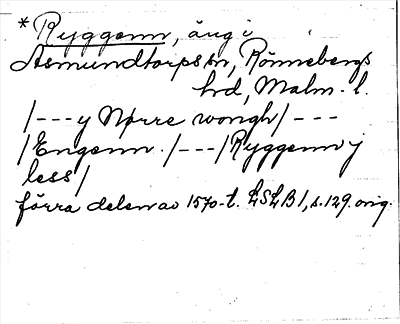 *Ryggenn, äng i
Asmundtorps sn, Rönnebergs
hd, Malm. l.
/---y Nørre wongh/---
/Engenn./---/Ryggenn y
less/
förra delen av 1570-t. LSLB 1, s. 129. orig.